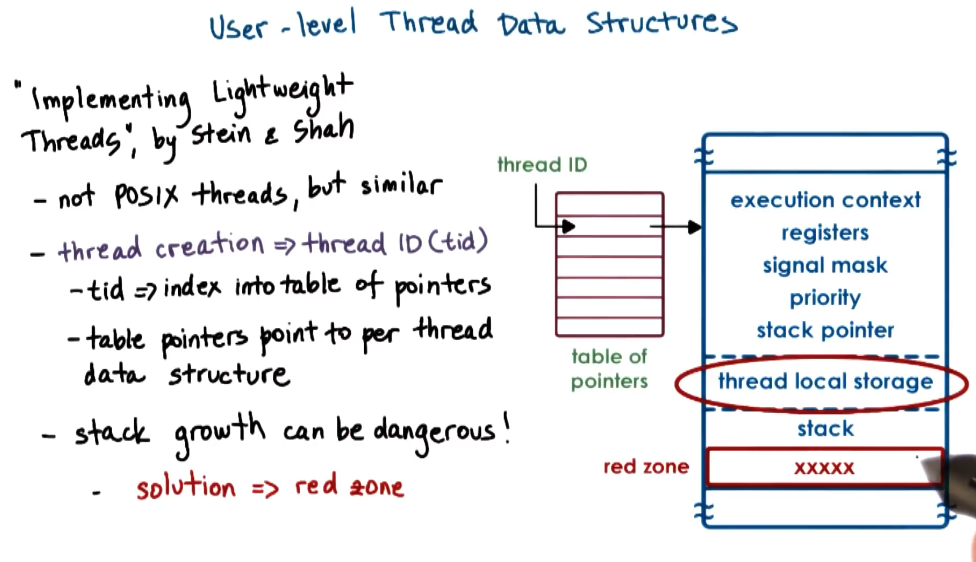 User-level Thread Data Structures
"Implementing Lightweight
Threads", by Stein & Shah
- not POSIX threads, but similar
- thread creation => thread ID (tid)
- tid => index into table of pointers
- table pointers point to per thread
data structure
- stack growth can be dangerous!
- solution => red zone
thread ID
table of
pointers
execution context
registers
signal mask
priority
stack pointer
thread local storage
stack
red zone
xxxxx